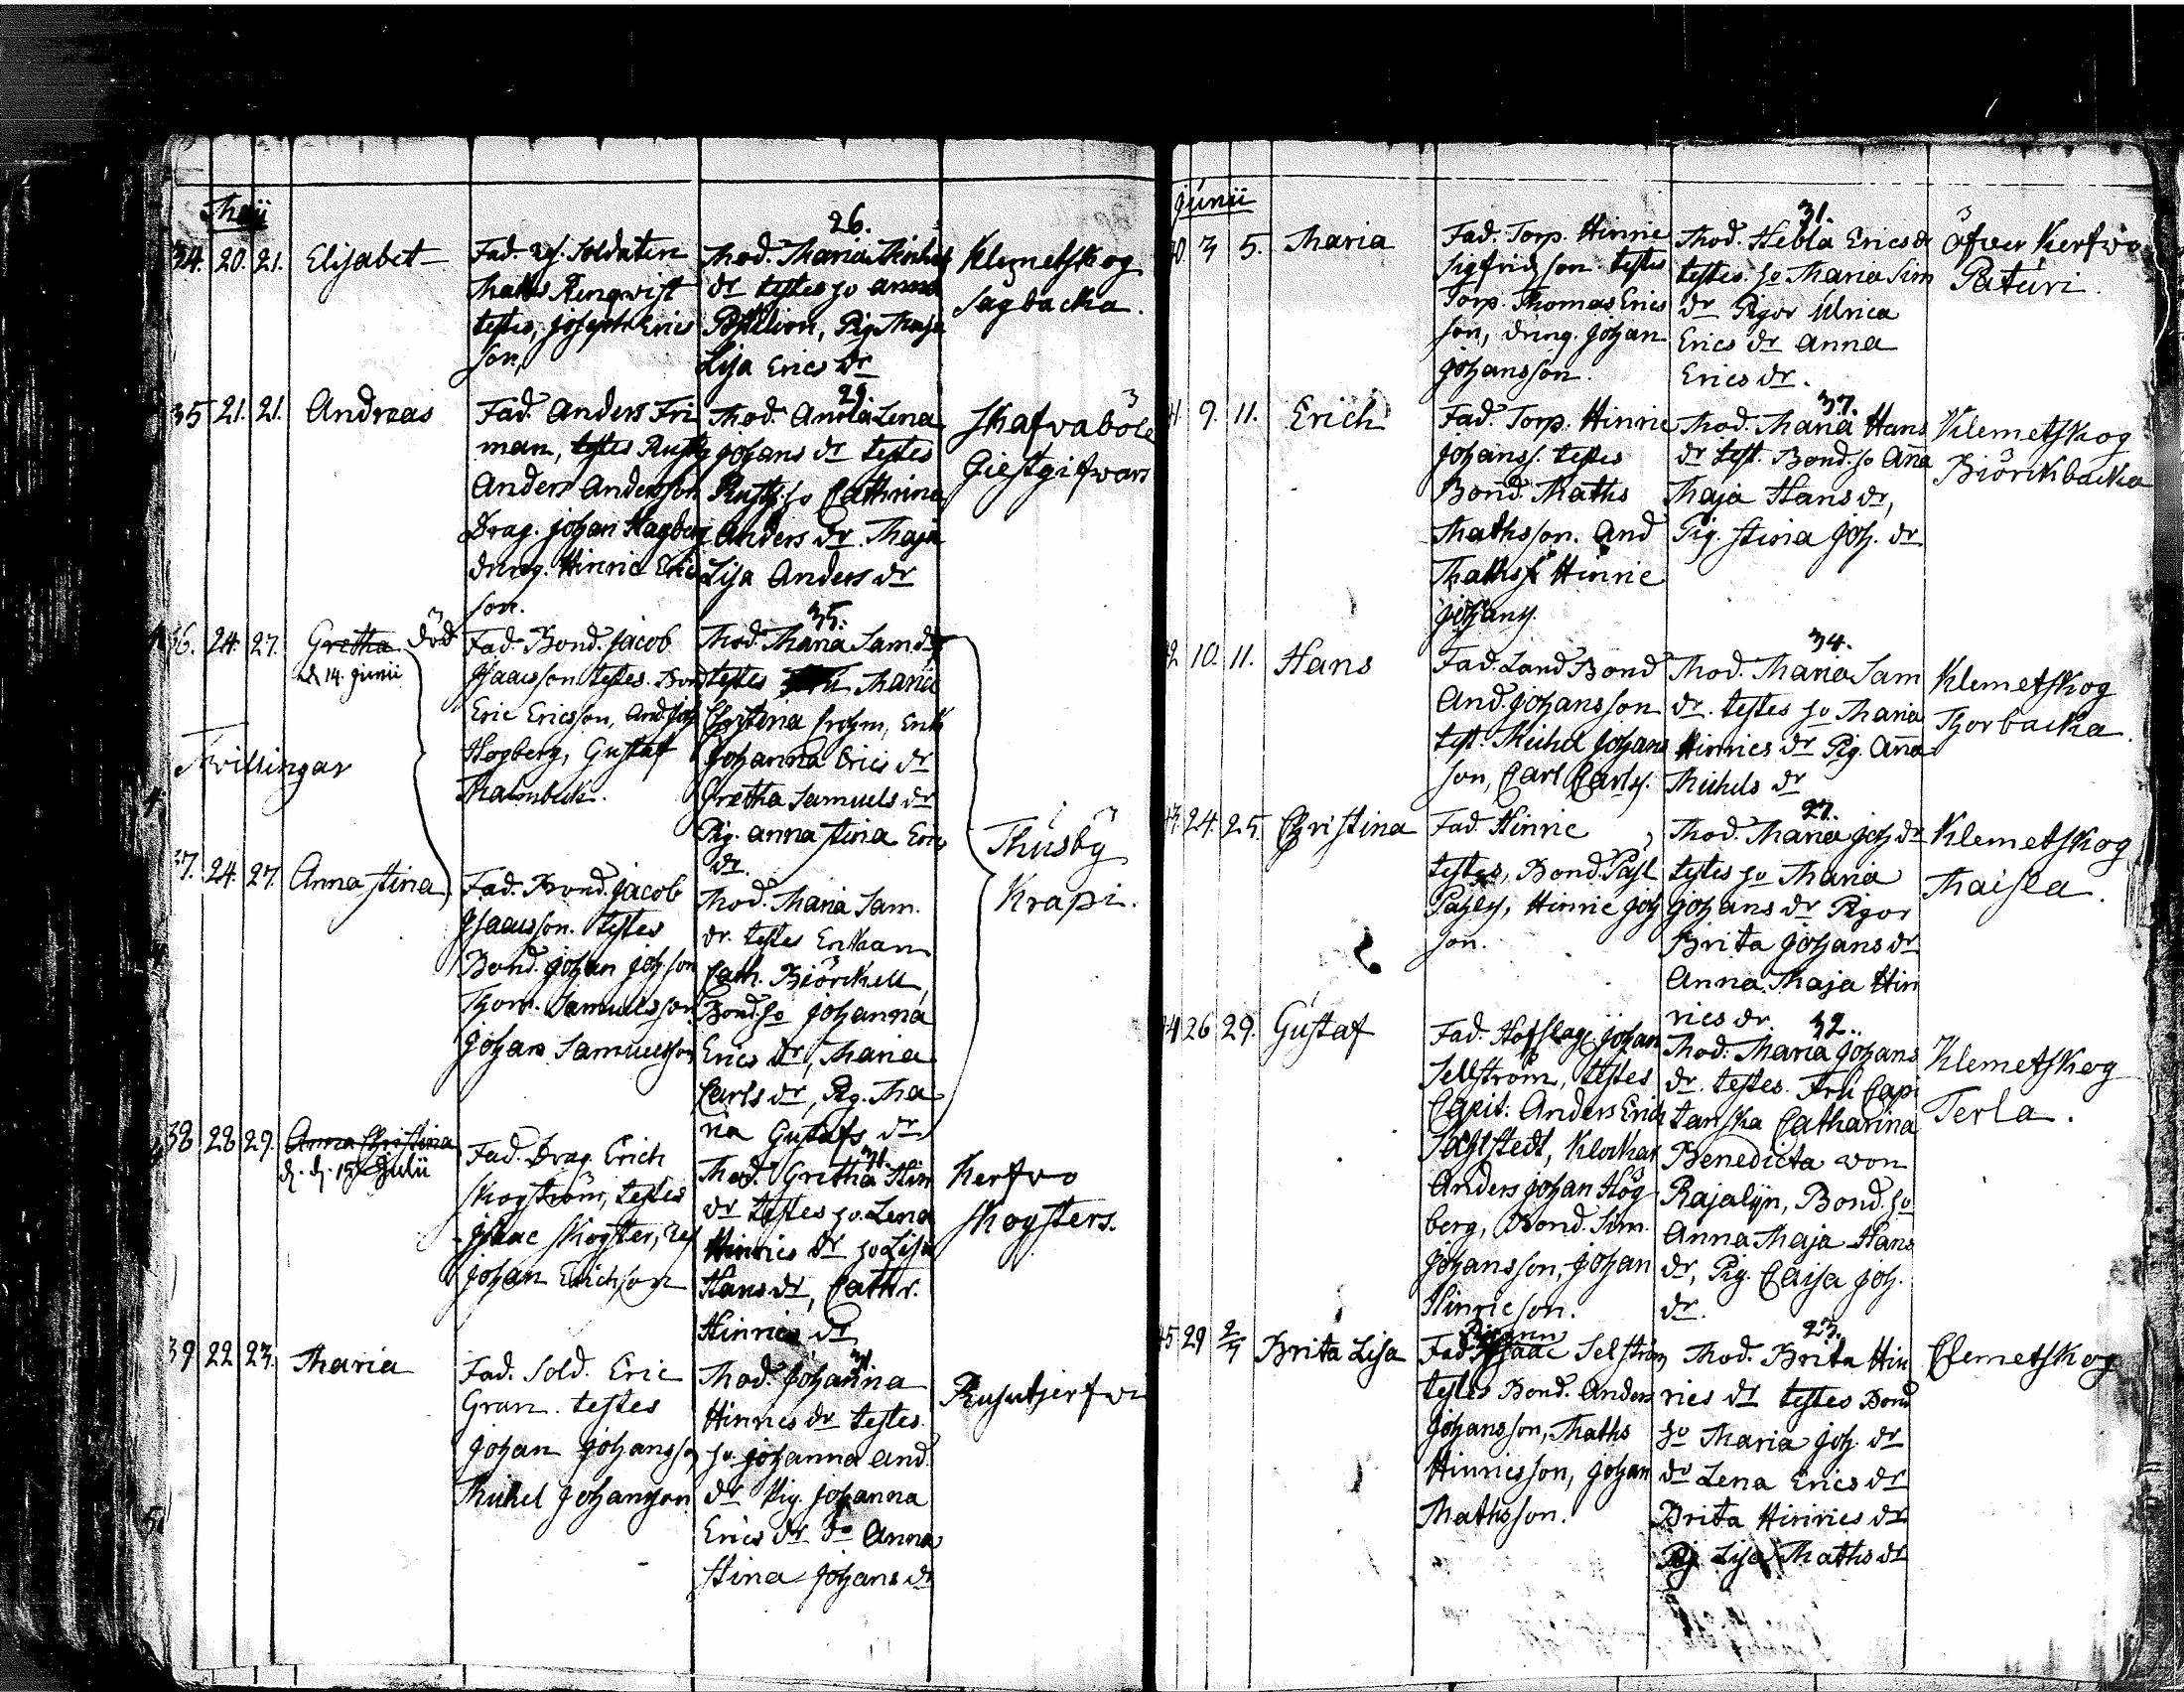 Maij
34. 20. 21. Elisabet
Fad. Rs. Soldaten
Maths Renqvist
testes, Joseph Erics
son,
26.
Mod. Maria Michels
dr testes ho Anna
Postilion, Pig. Maja
Lisa Erics dr
Klemetskog
Sågbacka.
35 21. 21. Andreas
Fad. Anders Fri
man, testes Rusth.
Anders Andersson
Drag. Johan Hagberg
dräng. Hinric Erics
son.
29.
Mod. Anna Lena
Johans dr testes
Rusth. ho Cathrina
Anders dr Maja
Lisa Anders dr
Skafvaböle
Giestgifvars
36. 24. 27. Gretha död
d. 14. Junii
Fad. Bond. Jacob
Isaacsson testes. Bond
Eric Ericsson, And. Joh
Högberg, Gustaf
Malmbeck.
35.
Mod. Maria Sam dr
testes Maria
Christina Enk
Johanna Erics dr
Gretha Samuels dr
Pig. Anna Stina Erics
dr.
Tvillingar
Thusby
Krapi.
37. 24. 27. Anna Stina
Fad. Bond. Jacob
Isaacsson. testes
Bond. Johan Joh. son
Thom. Samuelsson
Johan Samuelsson
Mod. Maria Sam.
dr. testes Enkan
Cath. Biörckell,
Bond. ho Johanna
Erics dr, Maria
Carls dr, Pig. Ma
ria Gustafs dr
38 28 29. Anna Christina
d. d. 15 Julii
Fad. Drag. Erich
Skogström, testes
Isaac Skogster, Rs
Johan Erichson
31.
Mod. Gretha Hin
dr testes ho Lena
Hinrics dr ho Lisa
Hans dr, Cathr.
Hinrics dr
Kerfvo
Skogsters.
39 22 23. Maria
Fad. Sold. Eric
Gran. testes
Johan Johansson
Michel Johansson
31.
Mod. Johanna
Hinrics dr testes
ho Johanna And.
dr Pig. Johanna
Erics dr do Anna
Stina Johans dr
Rusutjerfvi
Junii
40. 3 5. Maria
Fad. Torp. Hinric
Sigfridsson testes
Torp. Thomas Erics
son, dräng. Johan
Johansson.
31.
Mod. Hebla Erics dr
testes. ho Maria Sim
dr Pigor Ulrica
Erics dr Anna
Erics dr.
Öfver Kerfvo
Paturi.
41. 9. 11. Erich
Fad. Torp. Hinric
Johanss. testes
Bond. Maths
Mathsson. And
Mathss Hinric
Johanss.
37.
Mod. Maria Hans
dr test. Bond. ho Anna
Maja Hans dr,
Pig. Stina Joh. dr
Klemetskog
Biörckbacka
42 10. 11. Hans
Fad. Land Bond
And. Johansson
test. Michel Johans
son, Carl Carlss.
34.
Mod. Maria Sam
dr. testes ho Maria
Hinrics dr Pig. Anna
Michels dr
Klemetskog
Thorbacka.
43. 24. 25. Christina
Fad. Hinric
testes, Bond. Påhl
Påhlss, Hinric Joh
son.
27.
Mod. Maria Joh dr
testes ho Maria
Johans dr Pigor
Brita Johans dr
Anna Maja Hin
rics dr.
Klemetskog
Maisla.
44 26 29. Gustaf
Fad. Hofslag. Johan
Sellström, testes
Capit: Anders Erich
Ståhlstedt, Klockar
Anders Johan Hög
berg, Bond. Sim.
Johansson, Johan
Hinricson.
32.
Mod. Maria Johans
dr. testes. Fru Capi
tanska Catharina
Benedicta von
Rajalijn, Bond. ho
Anna Maja Hans
dr, Pig. Caisa Joh.
dr.
Klemetskog
Terla.
45 29 2/7 Brita Lisa
Fad. Isaac Selström
testes Bond. Anders
Johansson, Maths
Hinricsson, Johan
Mathsson.
23.
Mod. Brita Hin
rics dr testes Bond
ho Maria Joh. dr
dr Lena Erics dr
Brita Hinrics dr
Pig. Lisa Maths dr
Clemetskog